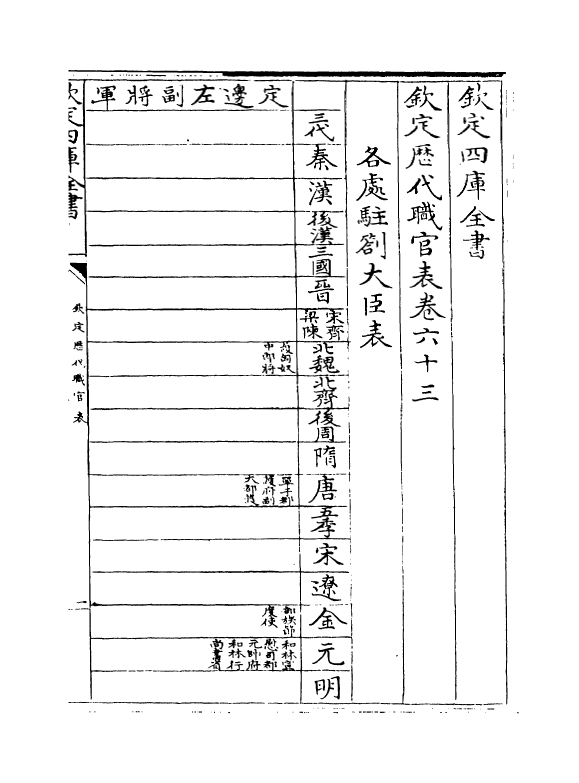 欽定四庫全書
欽定歷代職官表卷六十三
各處駐劄大臣表
三代
秦
漢
後漢
三國
晉
宋齊
梁陳
北魏
北齊
後周
隋
唐
五季
宋
遼
金
元
明
定邊左副將軍
護匈奴
中郎將
單于都
護府副
大都護
部族節
度使
和林宣
慰司都
元帥府
和林行
尚書省
欽定四庫全書
欽定歷代職官表